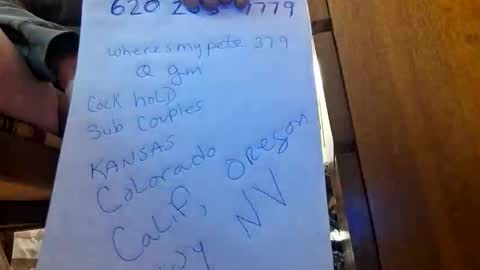 620
7779
wheresmypete 379
@ gm
Cock hold
Sub couples
KANSAS
Colorado
Calif, Oregon
NV